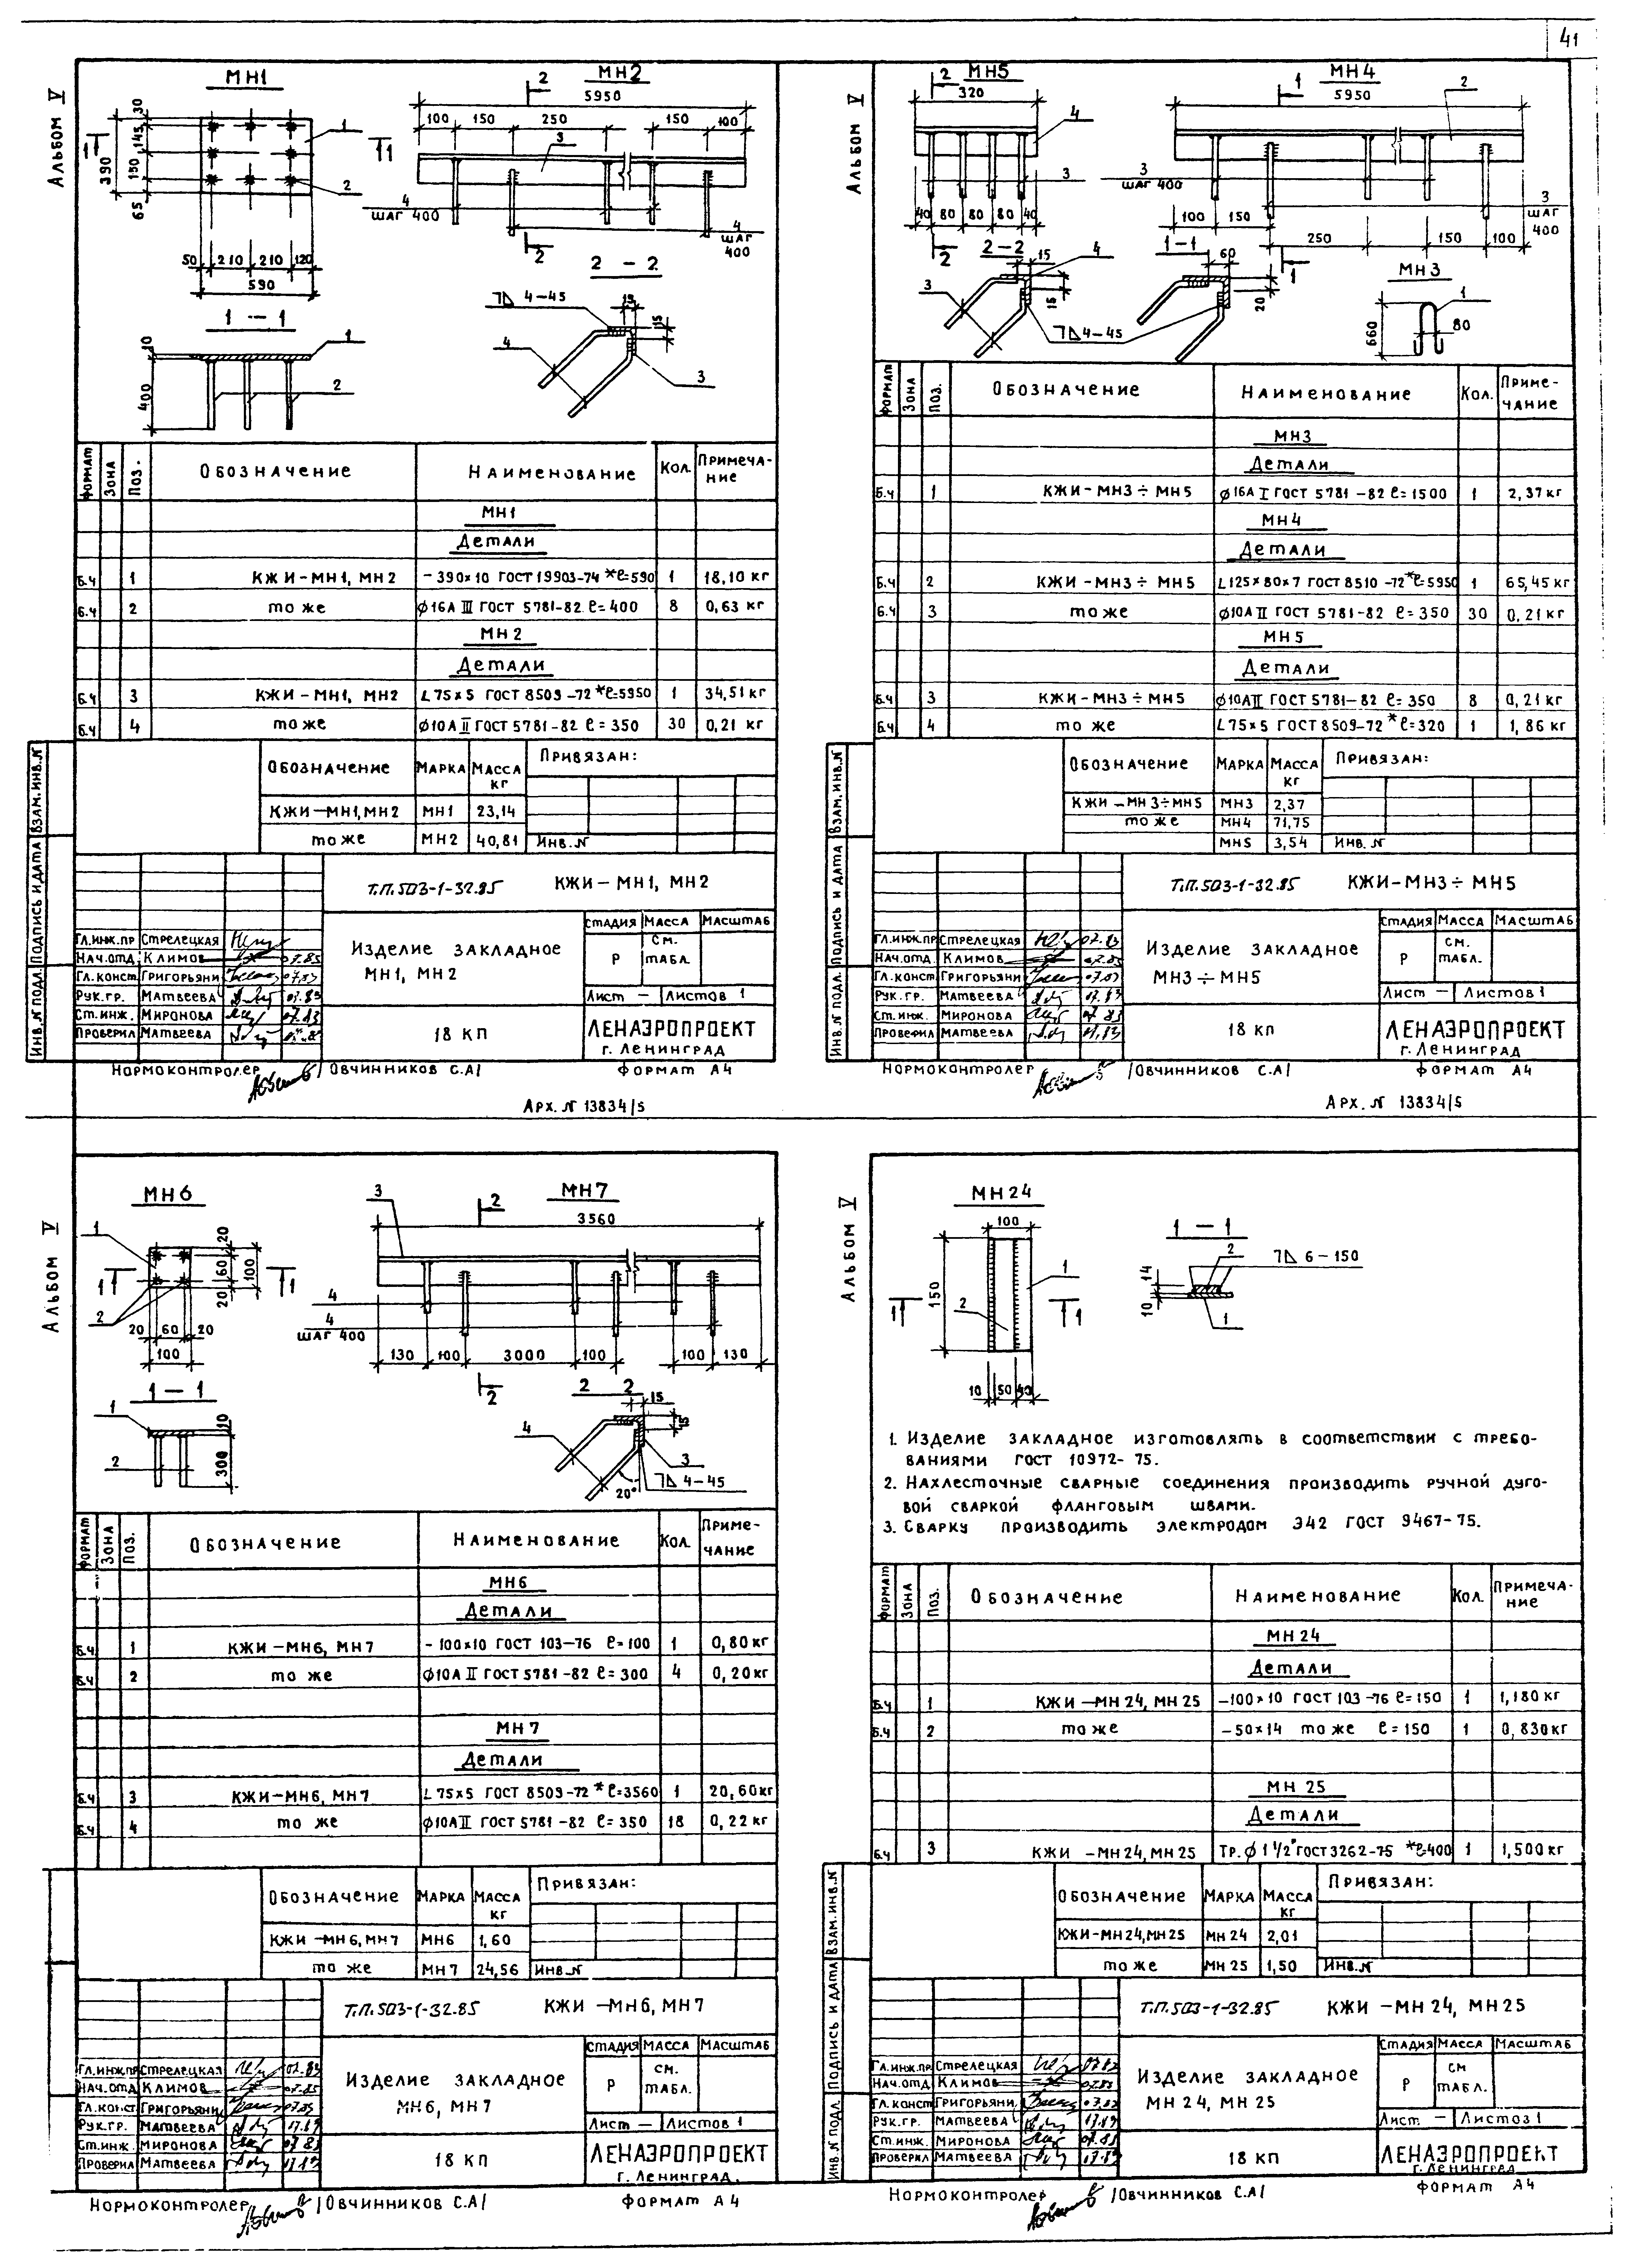 41
Альбом V
МН1
30
145
150
65
390
1
1
1
2
50 210 210 120
590
1 — 1
10
400
1
2
МН2
2
5950
100 150 250 150 100
3
4
шаг 400
4
шаг 400
2
2 — 2
4–45
15
15
4
3
Формат Зона Поз. Обозначение Наименование Кол. Примеча-
ние
МН1
Детали
Б.ч 1 КЖИ–МН1, МН2 – 390×10 ГОСТ 19903–74* ℓ=590 1 18,10 кг
Б.ч 2 то же ϕ16А III ГОСТ 5781–82 ℓ= 400 8 0,63 кг
МН2
Детали
Б.ч 3 КЖИ – МН1, МН2 L 75×5 ГОСТ 8509–72* ℓ=5950 1 34,51 кг
Б.ч 4 то же ϕ10А II ГОСТ 5781–82 ℓ= 350 30 0,21 кг
Обозначение Марка Масса
кг
Привязан:
КЖИ–МН1,МН2 МН1 23,14
то же МН2 40,81 Инв.N
Взам.инв.N
Подпись и дата
Инв.N подл.
Т.П.503-1-32.85 КЖИ – МН1, МН2
Изделие закладное
МН1, МН2
Стадия Масса Масштаб
Р см.
табл.
Лист — Листов 1
Гл.инж.пр Стрелецкая
Нач.отд. Климов
Гл.конст. Григорьянц
Рук.гр. Матвеева
Ст.инж. Миронова
Проверил Матвеева
18 КП
ЛЕНАЭРОПРОЕКТ
г. Ленинград
Нормоконтролер /Овчинников С.А/ Формат А4
Арх. N 13834/5
Альбом V
МН5
2
320
4
3
40 80 80 80 40
2
2–2
15
15
4
3
МН4
1
5950
2
3
шаг 400
3
шаг
400
100 150
250 150 100
1
1–1
60
20
4–45
МН3
660
1
80
Формат Зона Поз. Обозначение Наименование Кол. Приме-
чание
МН3
Детали
Б.ч 1 КЖИ–МН3÷МН5 ϕ16А I ГОСТ 5781–82 ℓ=1500 1 2,37 кг
МН4
Детали
Б.ч 2 КЖИ–МН3÷МН5 L125×80×7 ГОСТ 8510–72* ℓ=5950 1 65,45 кг
Б.ч 3 то же ϕ10А II ГОСТ 5781–82 ℓ=350 30 0,21 кг
МН5
Детали
Б.ч 3 КЖИ–МН3÷МН5 ϕ10А II ГОСТ 5781–82 ℓ=350 8 0,21 кг
Б.ч 4 то же L75×5 ГОСТ 8509–72* ℓ=320 1 1,86 кг
Обозначение Марка Масса
кг
Привязан:
КЖИ–МН3÷МН5 МН3 2,37
то же МН4 71,75
МН5 3,54 Инв. N
Взам.инв.N
Подпись и дата
Инв.N подл.
Т.П.503-1-32.85 КЖИ–МН3÷МН5
Изделие закладное
МН3÷МН5
Стадия Масса Масштаб
Р см.
табл.
Лист — Листов 1
Гл.инж.пр Стрелецкая
Нач.отд. Климов
Гл.конст. Григорьянц
Рук.гр. Матвеева
Ст.инж. Миронова
Проверил Матвеева
18 КП
ЛЕНАЭРОПРОЕКТ
г. Ленинград
Нормоконтролер /Овчинников С.А/ Формат А4
Арх. N 13834/5
Альбом V
МН6
1
20
60
20
100
1
1
2
20 60 20
100
1—1
1
10
300
2
МН7
3
2
3560
4
4
шаг 400
130 100 3000 100 100 130
2
2 2
15
15
4
3
4–45
20°
Формат Зона Поз. Обозначение Наименование Кол. Приме-
чание
МН6
Детали
Б.ч 1 КЖИ–МН6, МН7 – 100×10 ГОСТ 103–76 ℓ=100 1 0,80 кг
Б.ч 2 то же ϕ10А II ГОСТ 5781–82 ℓ=300 4 0,20 кг
МН7
Детали
Б.ч 3 КЖИ–МН6, МН7 L 75×5 ГОСТ 8509–72* ℓ=3560 1 20,60 кг
Б.ч 4 то же ϕ10А II ГОСТ 5781–82 ℓ=350 18 0,22 кг
Обозначение Марка Масса
кг
Привязан:
КЖИ–МН6,МН7 МН6 1,60
то же МН7 24,56 Инв.N
Т.П.503-1-32.85 КЖИ –МН6, МН7
Изделие закладное
МН6, МН7
Стадия Масса Масштаб
Р см.
табл.
Лист — Листов 1
Гл.инж.пр Стрелецкая
Нач.отд Климов
Гл.конст Григорьянц
Рук.гр. Матвеева
Ст.инж. Миронова
Проверил Матвеева
18 КП
ЛЕНАЭРОПРОЕКТ
г. Ленинград.
Нормоконтролер /Овчинников С.А/ Формат А4
Альбом V
МН24
100
150
1
2
1
1
10 50 40
1—1
2
6–150
14
10
1
1. Изделие закладное изготовлять в соответствии с требо-
ваниями ГОСТ 10972–75.
2. Нахлесточные сварные соединения производить ручной дуго-
вой сваркой фланговым швами.
3. Сварку производить электродом Э42 ГОСТ 9467–75.
Формат Зона Поз. Обозначение Наименование Кол. Примеча-
ние
МН24
Детали
Б.ч 1 КЖИ–МН24, МН25 –100×10 ГОСТ 103–76 ℓ=150 1 1,180 кг
Б.ч 2 то же –50×14 то же ℓ=150 1 0,830 кг
МН 25
Детали
Б.ч 3 КЖИ –МН24, МН25 Тр. ϕ 1 1/2" ГОСТ 3262–75* ℓ=400 1 1,500 кг
Обозначение Марка Масса
кг
Привязан:
КЖИ–МН24,МН25 МН24 2,01
то же МН25 1,50 Инв.N
Взам.инв.N
Подпись и дата
Инв.N подл.
Т.П.503-1-32.85 КЖИ –МН24, МН25
Изделие закладное
МН24, МН25
Стадия Масса Масштаб
Р см
табл.
Лист — Листов 1
Гл.инж.пр. Стрелецкая
Нач.отд. Климов
Гл.конст. Григорьянц
Рук.гр. Матвеева
Ст.инж. Миронова
Проверил Матвеева
18 КП
ЛЕНАЭРОПРОЕКТ
г. Ленинград
Нормоконтролер /Овчинников С.А/ Формат А4